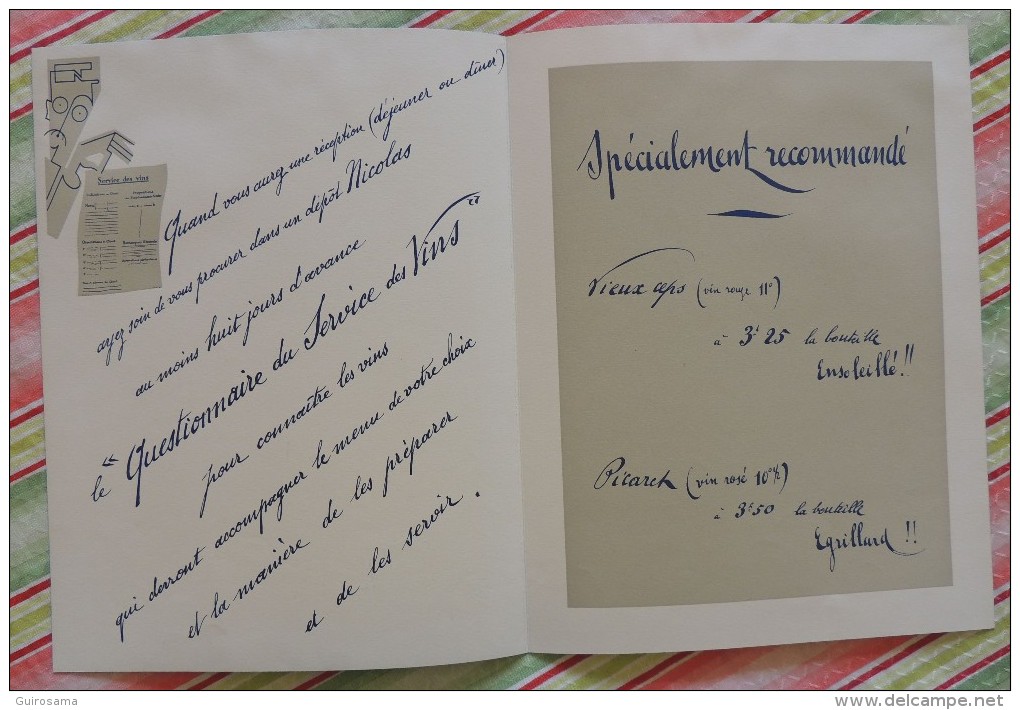 Service des vins
Quand vous aurez une réception (déjeuner ou dîner)
ayez soin de vous procurer dans un dépôt Nicolas
au moins huit jours d'avance
le "Questionnaire du Service des Vins"
pour connaître les vins
qui devront accompagner le menu de votre choix
et la manière de les préparer
et de les servir.
Spécialement recommandé
Vieux ceps (vin rouge 11°)
à 3f25 la bouteille
Ensoleillé!!
(vin rosé 10°½)
à 3f50 la bouteille
Egrillard!!
Guirosama
delcampe.net